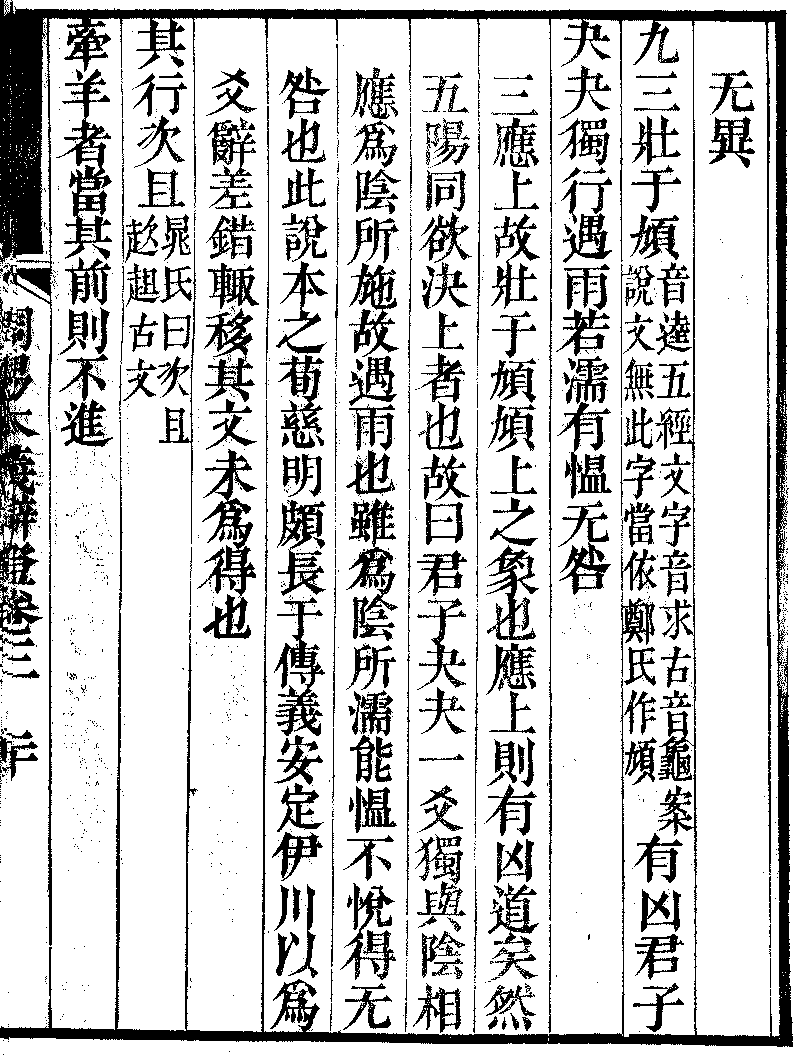 无異
九三壯于頄音逵五經文字音求古音龜案說文無此字當依鄭氏作頯有凶君子
夬夬獨行遇雨若濡有愠无咎
三應上故壯于頄頄上之象也應上則有凶道矣然
五陽同欲決上者也故曰君子夬夬一爻獨與陰相
應爲陰所施故遇雨也雖爲陰所濡能愠不悅得无
咎也此說本之荀慈明頗長于傳義安定伊川以爲
爻辭差錯輙移其文未爲得也
其行次且晁氏曰次且趑趄古文
牽羊者當其前則不進
周易本義辯證卷三